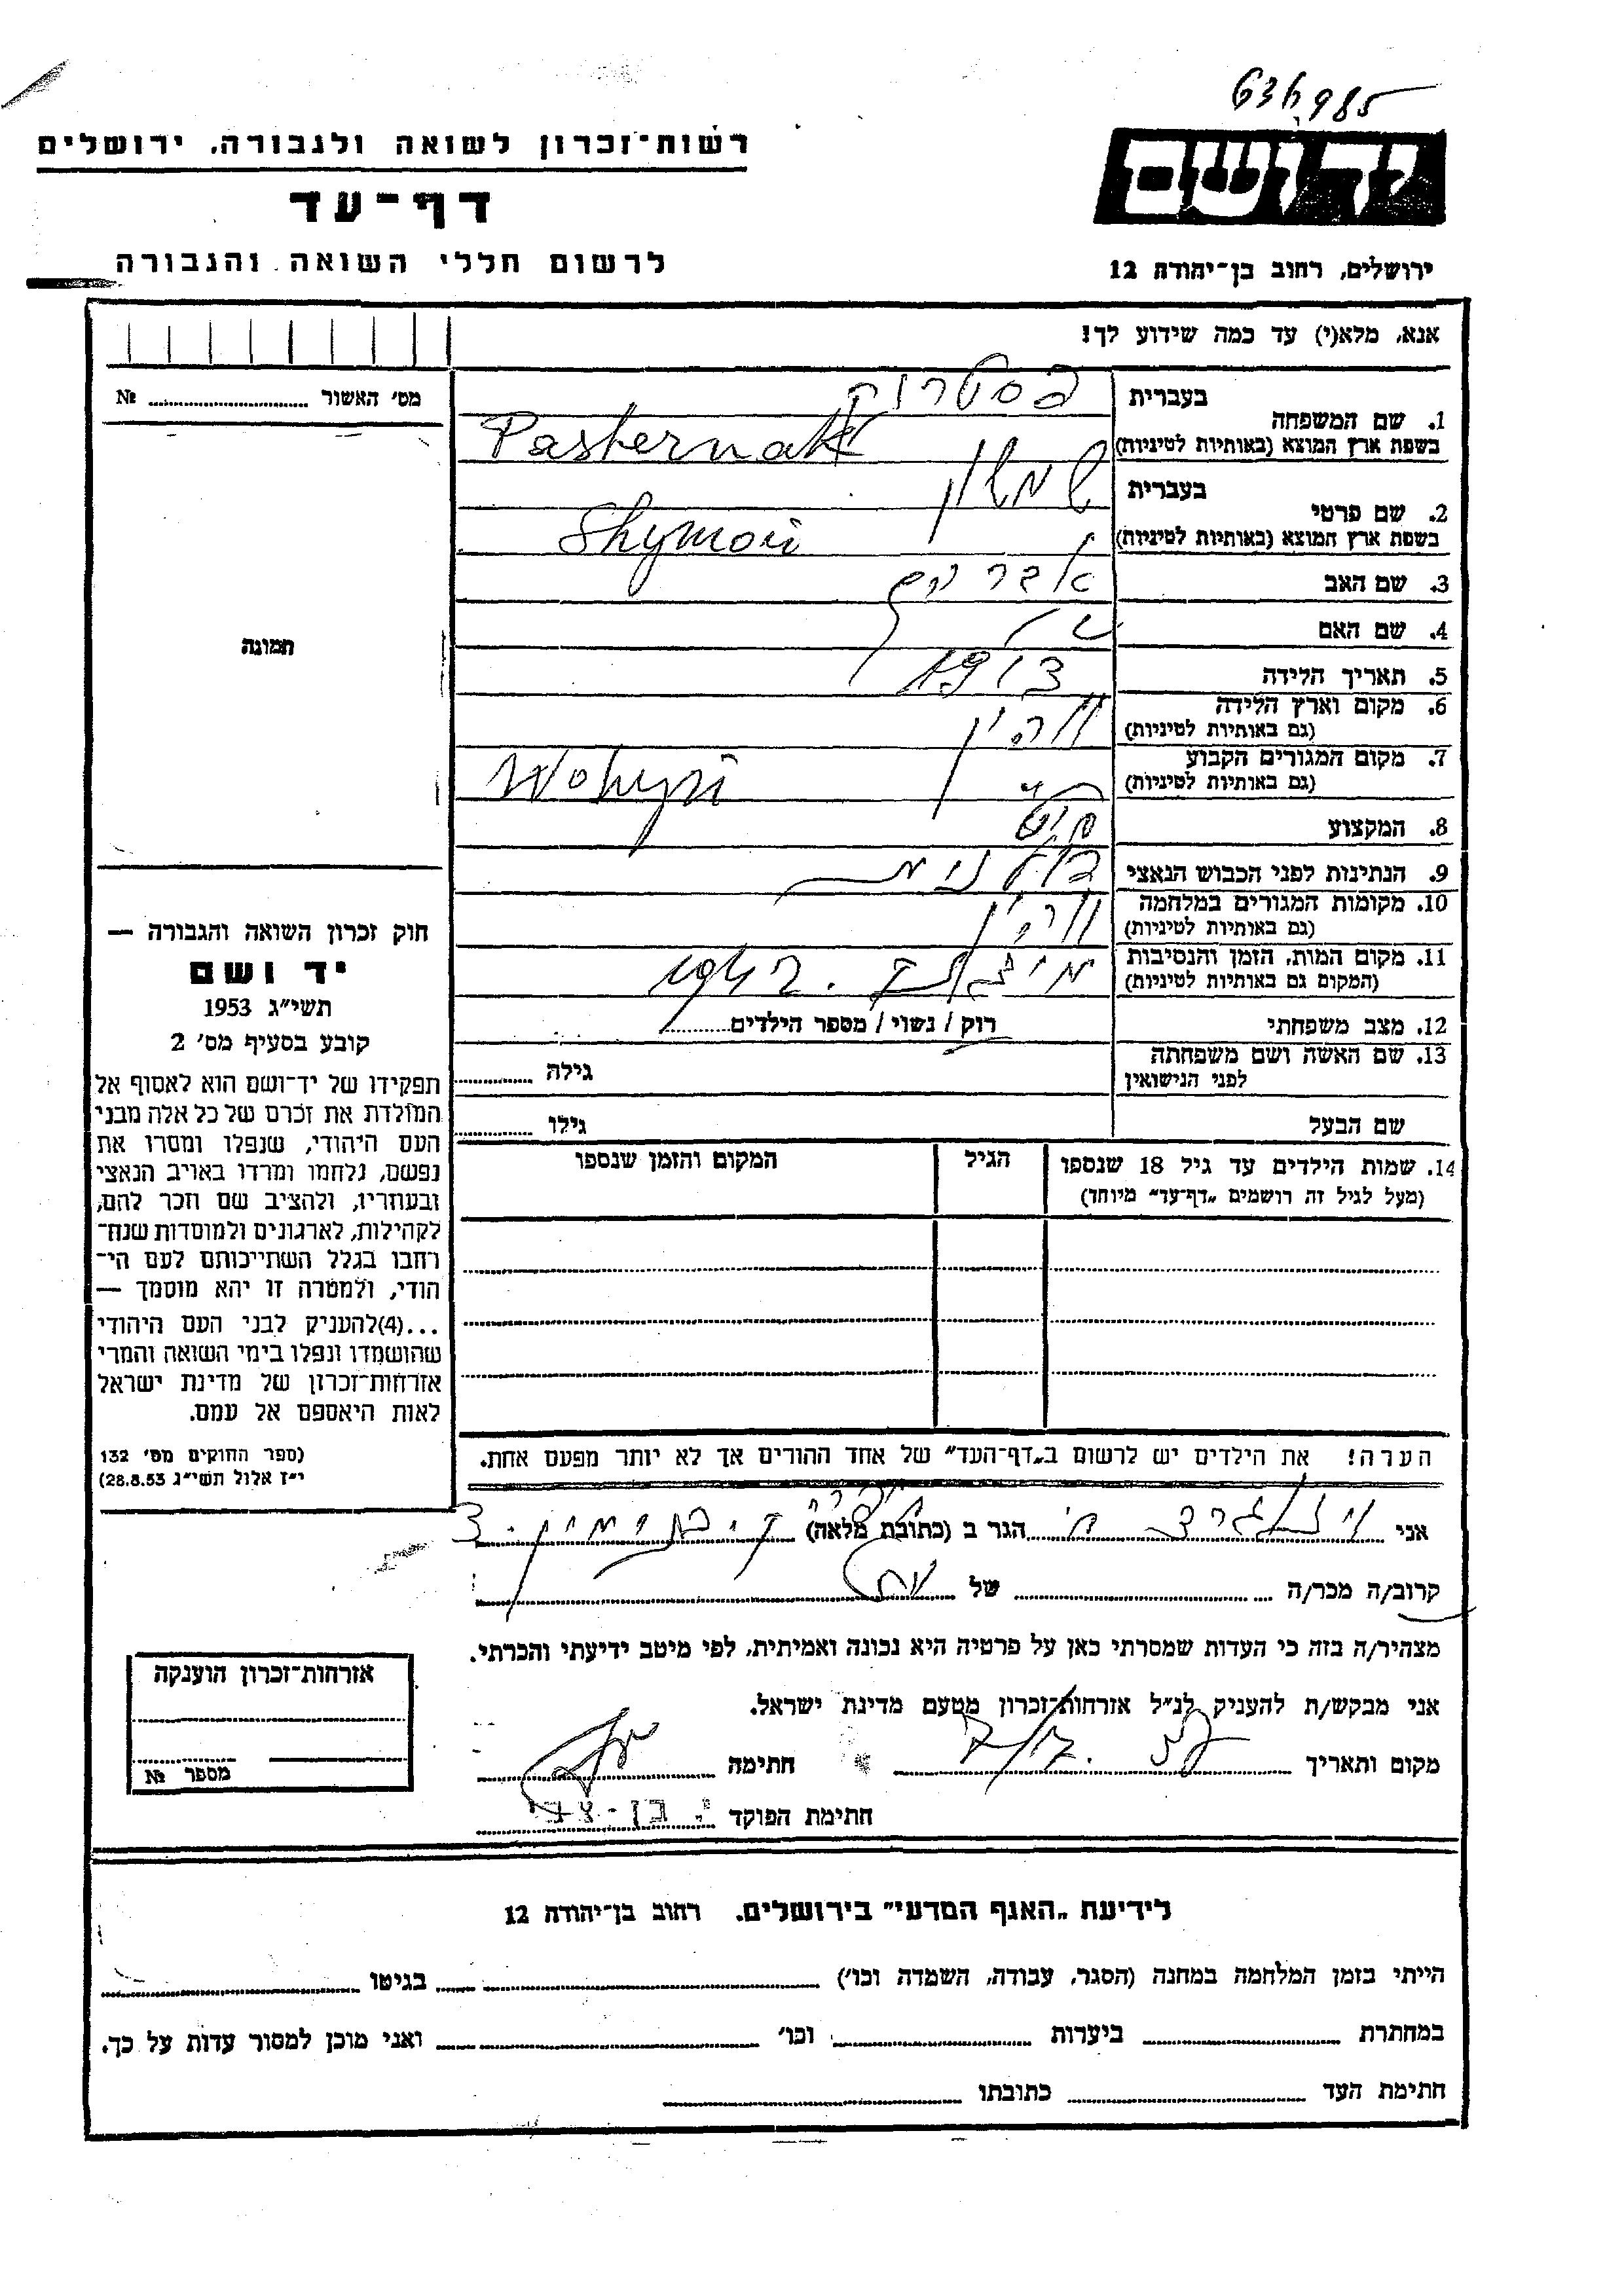 636985
רשות־זכרון לשואה ולגבורה, ירושלים
דף־עד
לרשום חללי השואה והגבורה
יד ושם
ירושלים, רחוב בן־יהודה 12
אנא, מלא(י) עד כמה שידוע לך!
מס׳ האשור № 
1. שם המשפחה
בעברית
בשפת ארץ המוצא (באותיות לטיניות)
Pasternak
2. שם פרטי
בעברית שמעון
בשפת ארץ המוצא (באותיות לטיניות)
Shymon
3. שם האב אברהם
4. שם האם
5. תאריך הלידה 1913
6. מקום וארץ הלידה ווהין
(גם באותיות לטיניות)
7. מקום המגורים הקבוע
(גם באותיות לטיניות)
Wohyń
8. המקצוע
9. הנתינות לפני הכבוש הנאצי
10. מקומות המגורים במלחמה ווהין
(גם באותיות לטיניות)
11. מקום המות, הזמן והנסיבות
(המקום גם באותיות לטיניות)
1942
12. מצב משפחתי רוק / נשוי / מספר הילדים
13. שם האשה ושם משפחתה
לפני הנישואין
גילה
שם הבעל גילו
14. שמות הילדים עד גיל 18 שנספו
(מעל לגיל זה רושמים „דף־עד״ מיוחד)
הגיל
המקום והזמן שנספו
תמונה
חוק זכרון השואה והגבורה —
יד ושם
תשי״ג 1953
קובע בסעיף מס׳ 2
תפקידו של יד־ושם הוא לאסוף אל
המולדת את זכרם של כל אלה מבני
העם היהודי, שנפלו ומסרו את
נפשם, נלחמו ומרדו באויב הנאצי
ובעוזריו, ולהציב שם וזכר להם,
לקהילות, לארגונים ולמוסדות שנח־
רבו בגלל השתייכותם לעם הי־
הודי, ולמטרה זו יהא מוסמך —
...(4)להעניק לבני העם היהודי
שהושמדו ונפלו בימי השואה והמרי
אזרחות־זכרון של מדינת ישראל
לאות היאספם אל עמם.
(ספר החוקים מס׳ 132
י״ז אלול תשי״ג 28.8.53)
הערה! את הילדים יש לרשום ב„דף־העד״ של אחד ההורים אך לא יותר מפעם אחת.
אני הגר ב (כתובת מלאה)
קרוב/ה מכר/ה של
מצהיר/ה בזה כי העדות שמסרתי כאן על פרטיה היא נכונה ואמיתית, לפי מיטב ידיעתי והכרתי.
אני מבקש/ת להעניק לנ״ל אזרחות־זכרון מטעם מדינת ישראל.
מקום ותאריך חתימה
חתימת הפוקד
אזרחות־זכרון הוענקה
מספר №
לידיעת „האגף המדעי״ בירושלים, רחוב בן־יהודה 12
הייתי בזמן המלחמה במחנה (הסגר, עבודה, השמדה וכו׳) בגיטו
במחתרת ביערות וכו׳ ואני מוכן למסור עדות על כך.
חתימת העד כתובתו